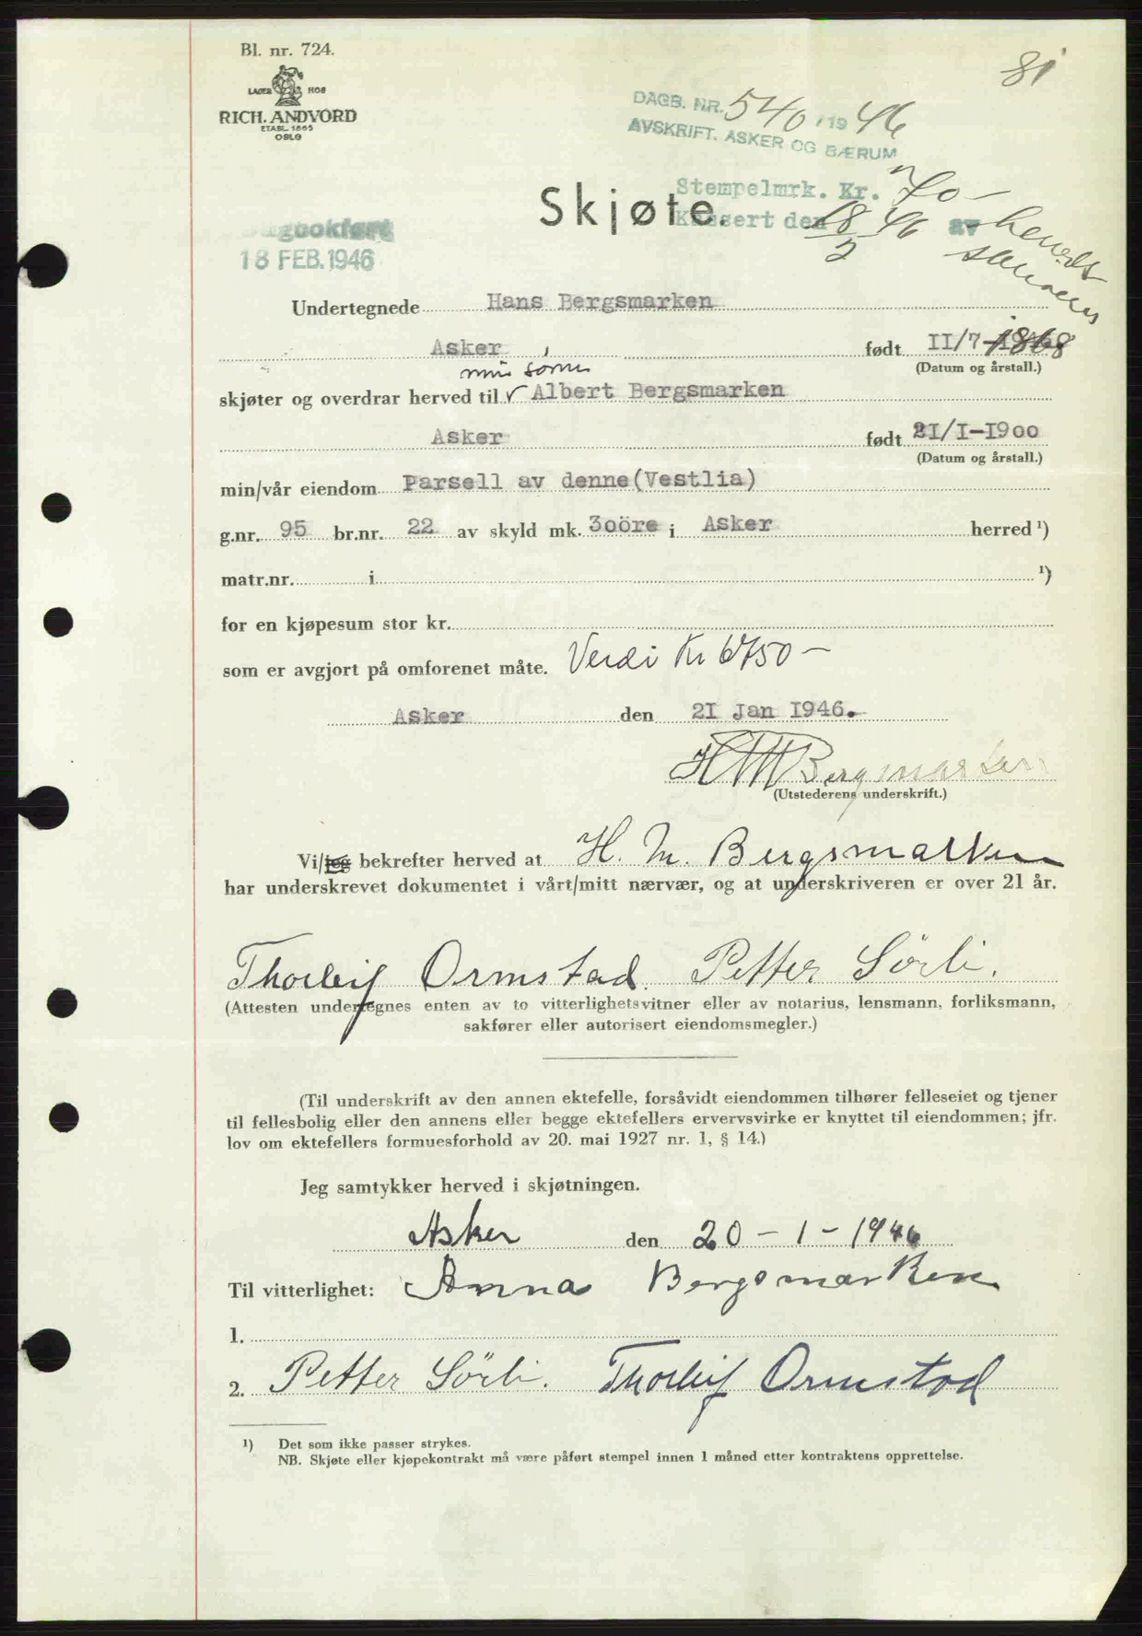 Bl. nr. 724.
LAGER HOS
RICH. ANDVORD
ETABL. 1865
OSLO
81
DAGB. NR. 540 / 19 46
AVSKRIFT. ASKER OG BÆRUM
Stempelmrk. Kr. 70-
Kassert den 18/2 46 av
Skjøte.
Dagbokført
18 FEB. 1946
Undertegnede Hans Bergsmarken
Asker født II/7-1868
(Datum og årstall.)
min sönn
skjøter og overdrar herved til Albert Bergsmarken
Asker født 21/I-1900
(Datum og årstall.)
min/vår eiendom Parsell av denne(Vestlia)
g.nr. 95 br.nr. 22 av skyld mk. 30öre i Asker herred ¹)
matr.nr. i ¹)
for en kjøpesum stor kr.
som er avgjort på omforenet måte. Verdi Kr 6750-
Asker den 21 Jan 1946.
H M Bergsmarken
(Utstederens underskrift.)
Vi/jeg bekrefter herved at H. M. Bergsmarken
har underskrevet dokumentet i vårt/mitt nærvær, og at underskriveren er over 21 år.
Thorleif Ormstad. Petter Sörli.
(Attesten undertegnes enten av to vitterlighetsvitner eller av notarius, lensmann, forliksmann,
sakfører eller autorisert eiendomsmegler.)
(Til underskrift av den annen ektefelle, forsåvidt eiendommen tilhører felleseiet og tjener
til fellesbolig eller den annens eller begge ektefellers ervervsvirke er knyttet til eiendommen; jfr.
lov om ektefellers formuesforhold av 20. mai 1927 nr. 1, § 14.)
Jeg samtykker herved i skjøtningen.
Asker den 20-1-1946
Til vitterlighet: Anna Bergsmarken
1.
2. Petter Sörli. Thorleif Ormstad
¹) Det som ikke passer strykes.
NB. Skjøte eller kjøpekontrakt må være påført stempel innen 1 måned etter kontraktens opprettelse.